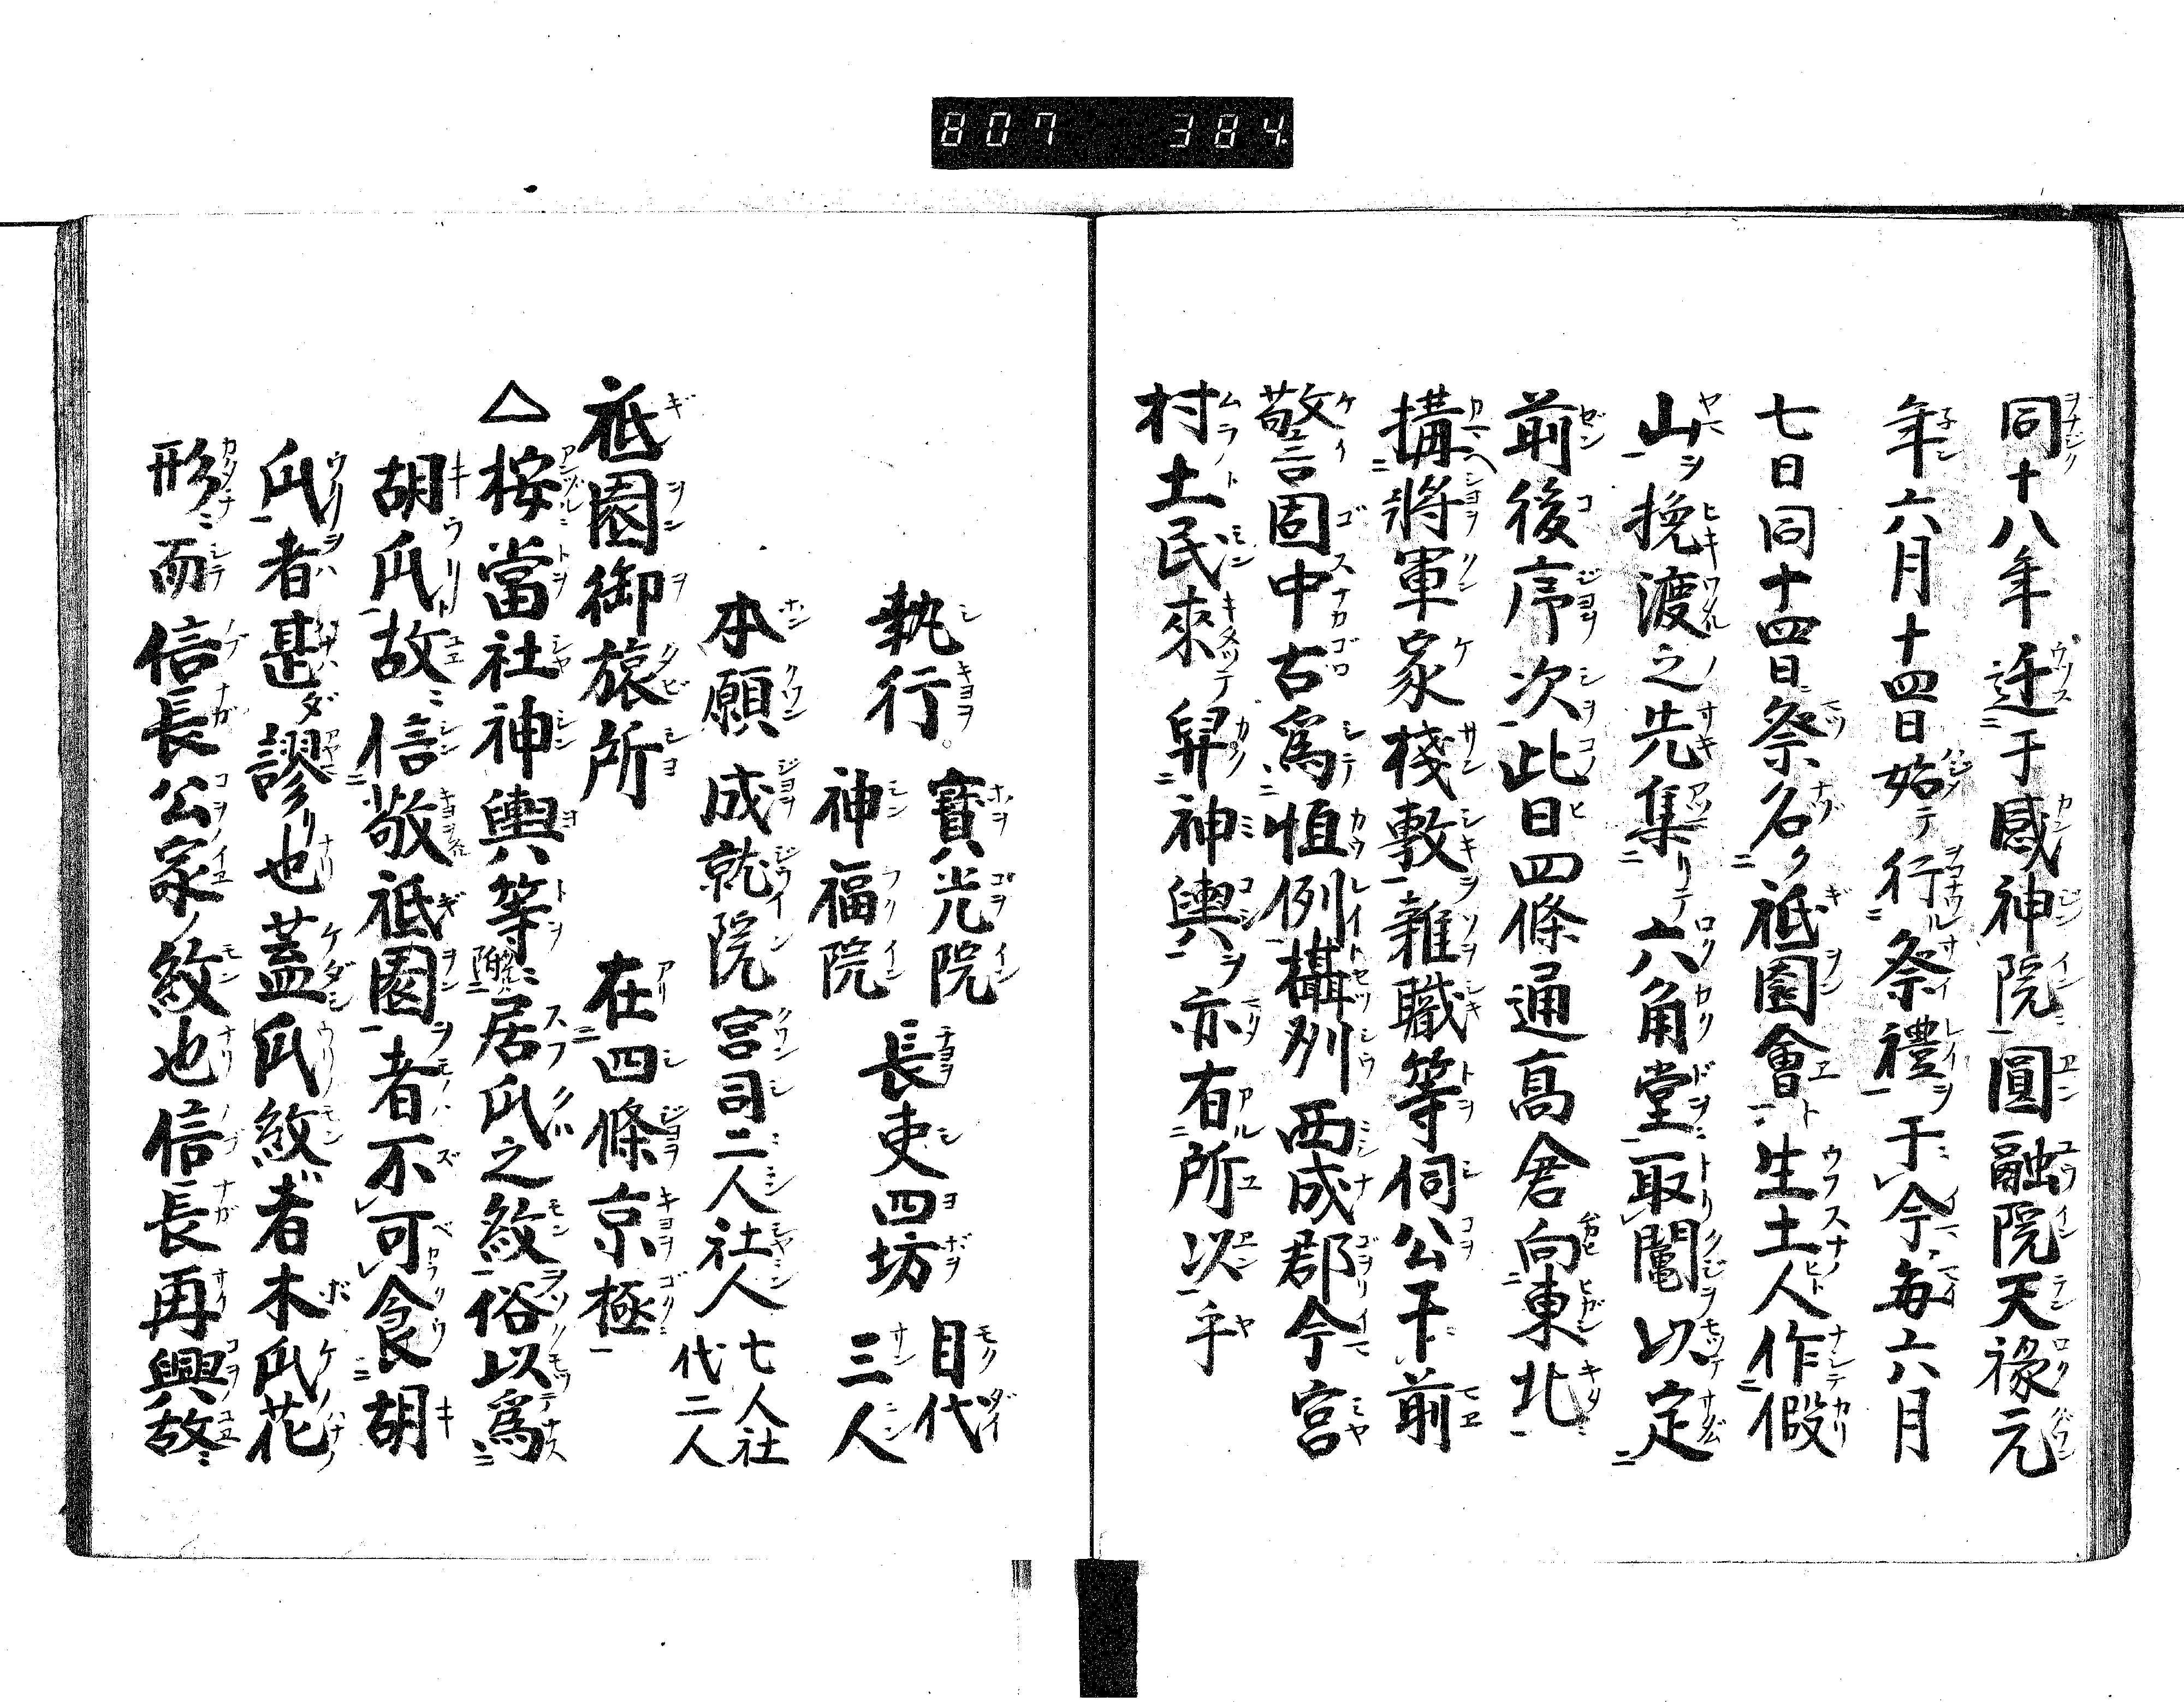 807 384
同十八年迁于感神院圓融院天祿元
年六月十四日始テ行祭禮ヲ于今每六月
七日同十四日祭名ク祇園會ト生土人作假
山ヲ挽渡之先集リテ六角堂取鬮以定
前後序次此日四條通高倉向東北
搆將軍家棧敷ヲ雜職等伺公于前
警固中古爲恒例攝州西成郡今宮
村土民來テ舁神輿ヲ亦有所以乎
執行 寶光院 神福院 長吏四坊 目代三人
本願 成就院 宮司二人 社人七人 社代二人
祇園御旅所 在四條京極
△按當社神輿等居瓜之紋俗以爲
胡瓜故信敬祇園ヲ者不可食胡
瓜者甚ダ謬リ也蓋瓜紋者木瓜花
形而信長公家ノ紋也信長再興故